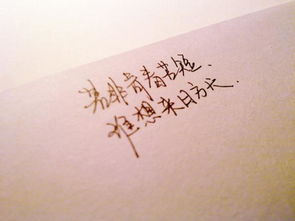 若非青春苦短,
谁想来日方长.